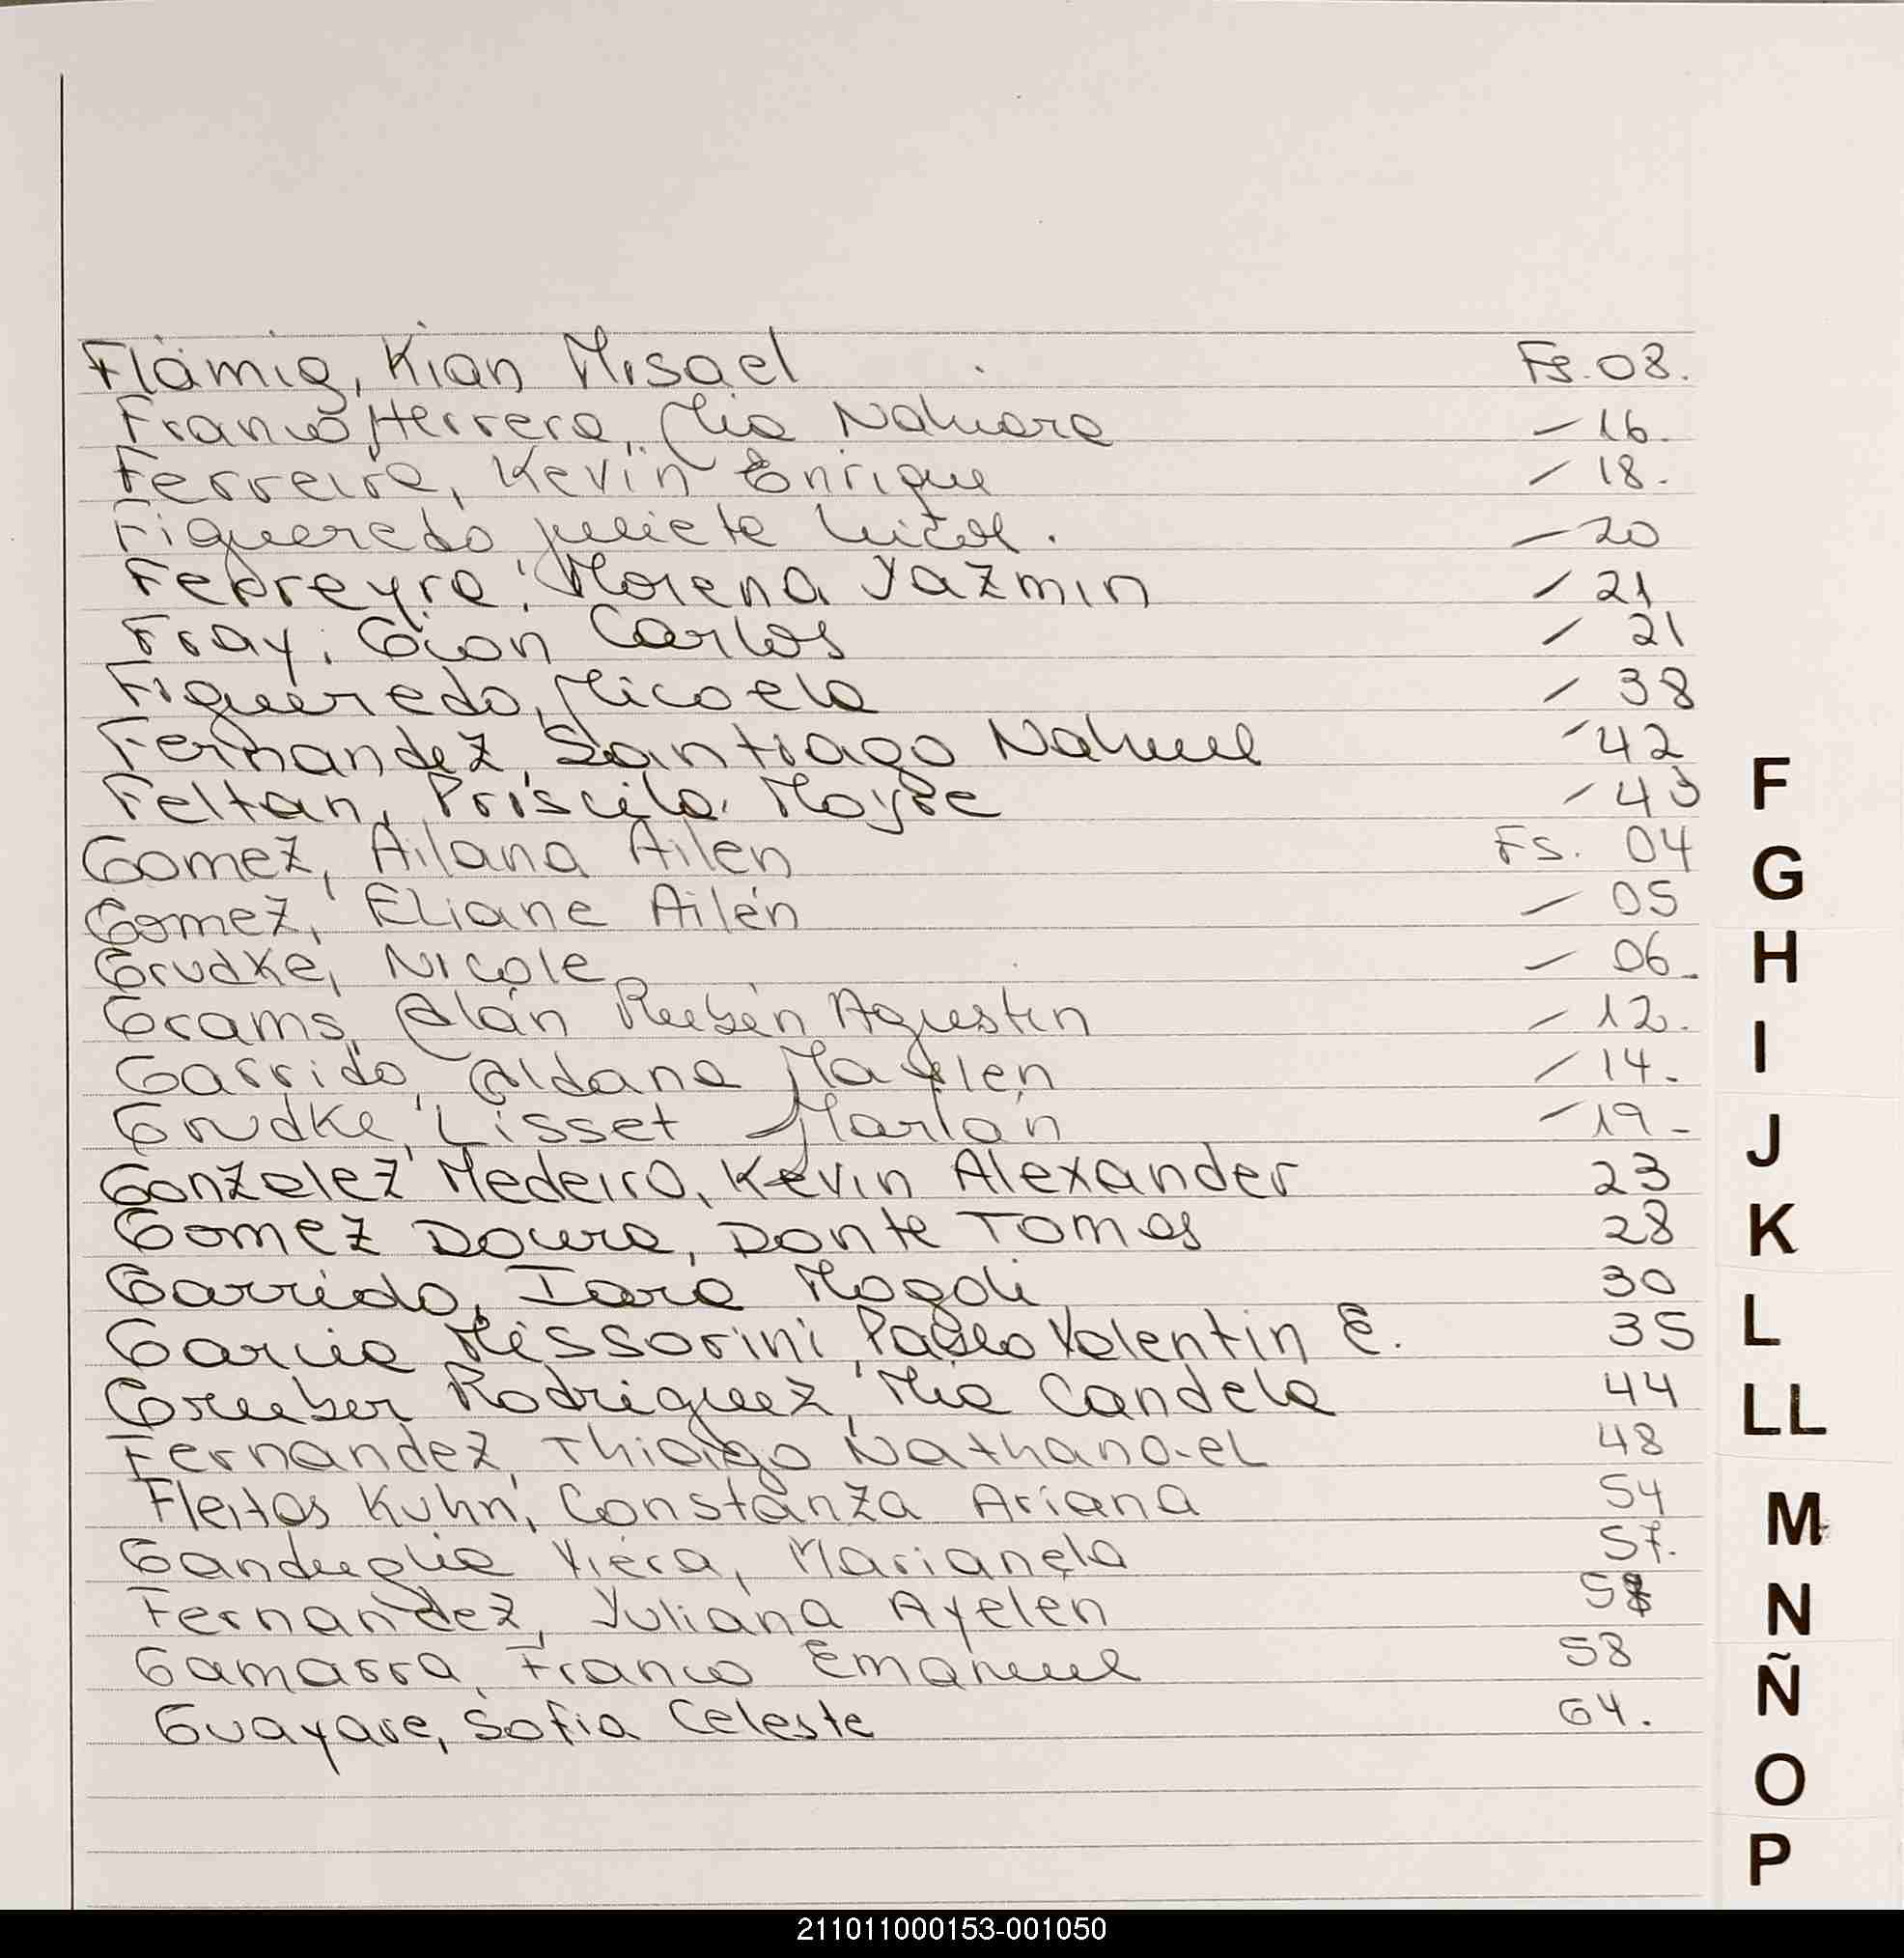 Flämig, Kian Misael Fs. 08.
Franco Herrera, Mia Nahiara — 16.
Ferreira, Kevin Enrique — 18.
Figueredo Julieta — 20
Ferreyra, Morena Yazmin — 21
Fray, Gian Carlos — 21
Figueredo, Micaela — 38
Fernandez, Santiago Nahuel — 42
Feltan, Priscila — 43
Gomez, Ailana Ailen Fs. 04
Gomez, Eliane Ailén — 05
Grudke, Nicole — 06
Grams, Alan Rubén Agustin — 12.
Garrido, Aldana Maylen — 14.
Grudke, Lisset Marlen — 19
Gonzalez Medeiro, Kevin Alexander 23
Gomez Doura, Donte Tomas 28
Garrido, Iara Magali 30
Garcia Missorini, Pablo Valentin E. 35
Gruber Rodriguez, Mia Candela 44
Fernandez, Thiago Nathanael 48
Fleitas Kuhn, Constanza Ariana 54
Ganduglia Viera, Marianela 57.
Fernandez, Yuliana Ayelen
Gamarra, Franco Emanuel 58
Guayare, Sofia Celeste 64.
F
G
H
I
J
K
L
LL
M
N
Ñ
O
P
211011000153-001050